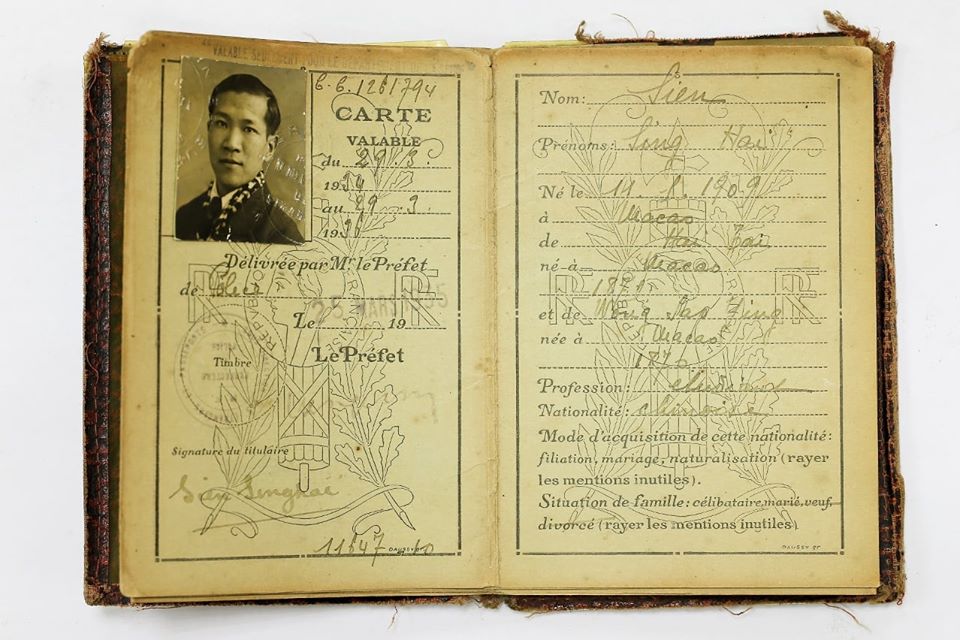 VALABLE SEULEMENT POUR LE
6.6.1261794
CARTE
VALABLE
du 29.3.
1934
au 29.3
1936
Délivrée par Mr. le Préfet
de
Le 25 MARS 1935 19
Timbre
Le Préfet
Signature du titulaire
Sien Singhai
11647
DAUSSY
Nom: Sien
Prénoms: Sing Hai
Né le 14.8.1909
à Macao
de Hai Zai
né à Macao
1871
et de Wong Sao Zing
née à Macao
1870
Profession:
Nationalité: chinoise
Mode d'acquisition de cette nationalité:
filiation, mariage, naturalisation (rayer
les mentions inutiles).
Situation de famille: célibataire, marié, veuf,
divorcé (rayer les mentions inutiles)
DAUSSY
RF
RF
RF